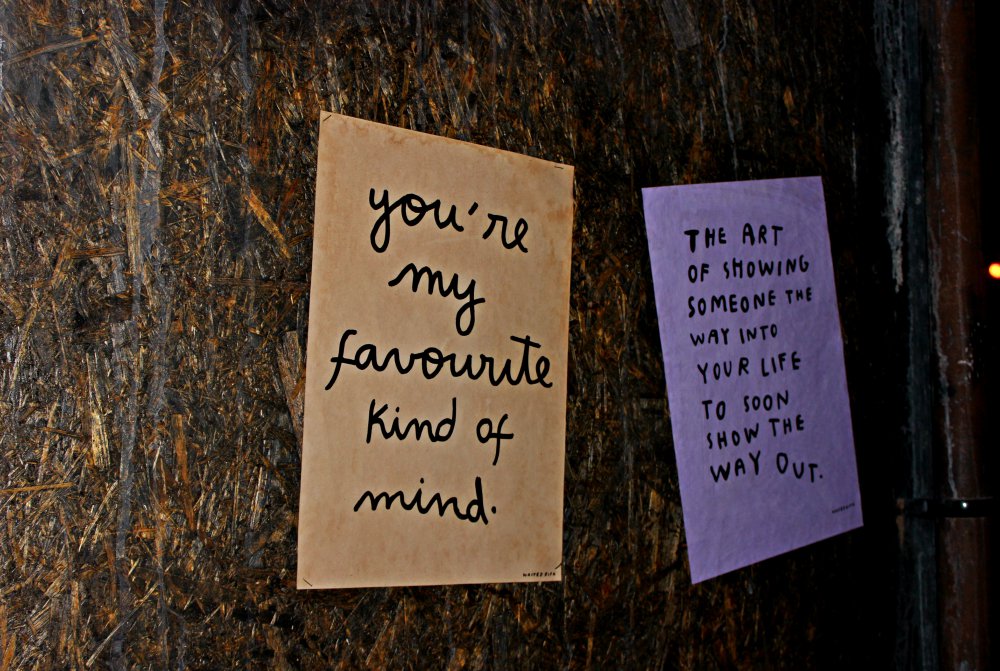 you're
my
favourite
kind of
mind.
THE ART
OF SHOWING
SOMEONE THE
WAY INTO
YOUR LIFE
TO SOON
SHOW THE
WAY OUT.